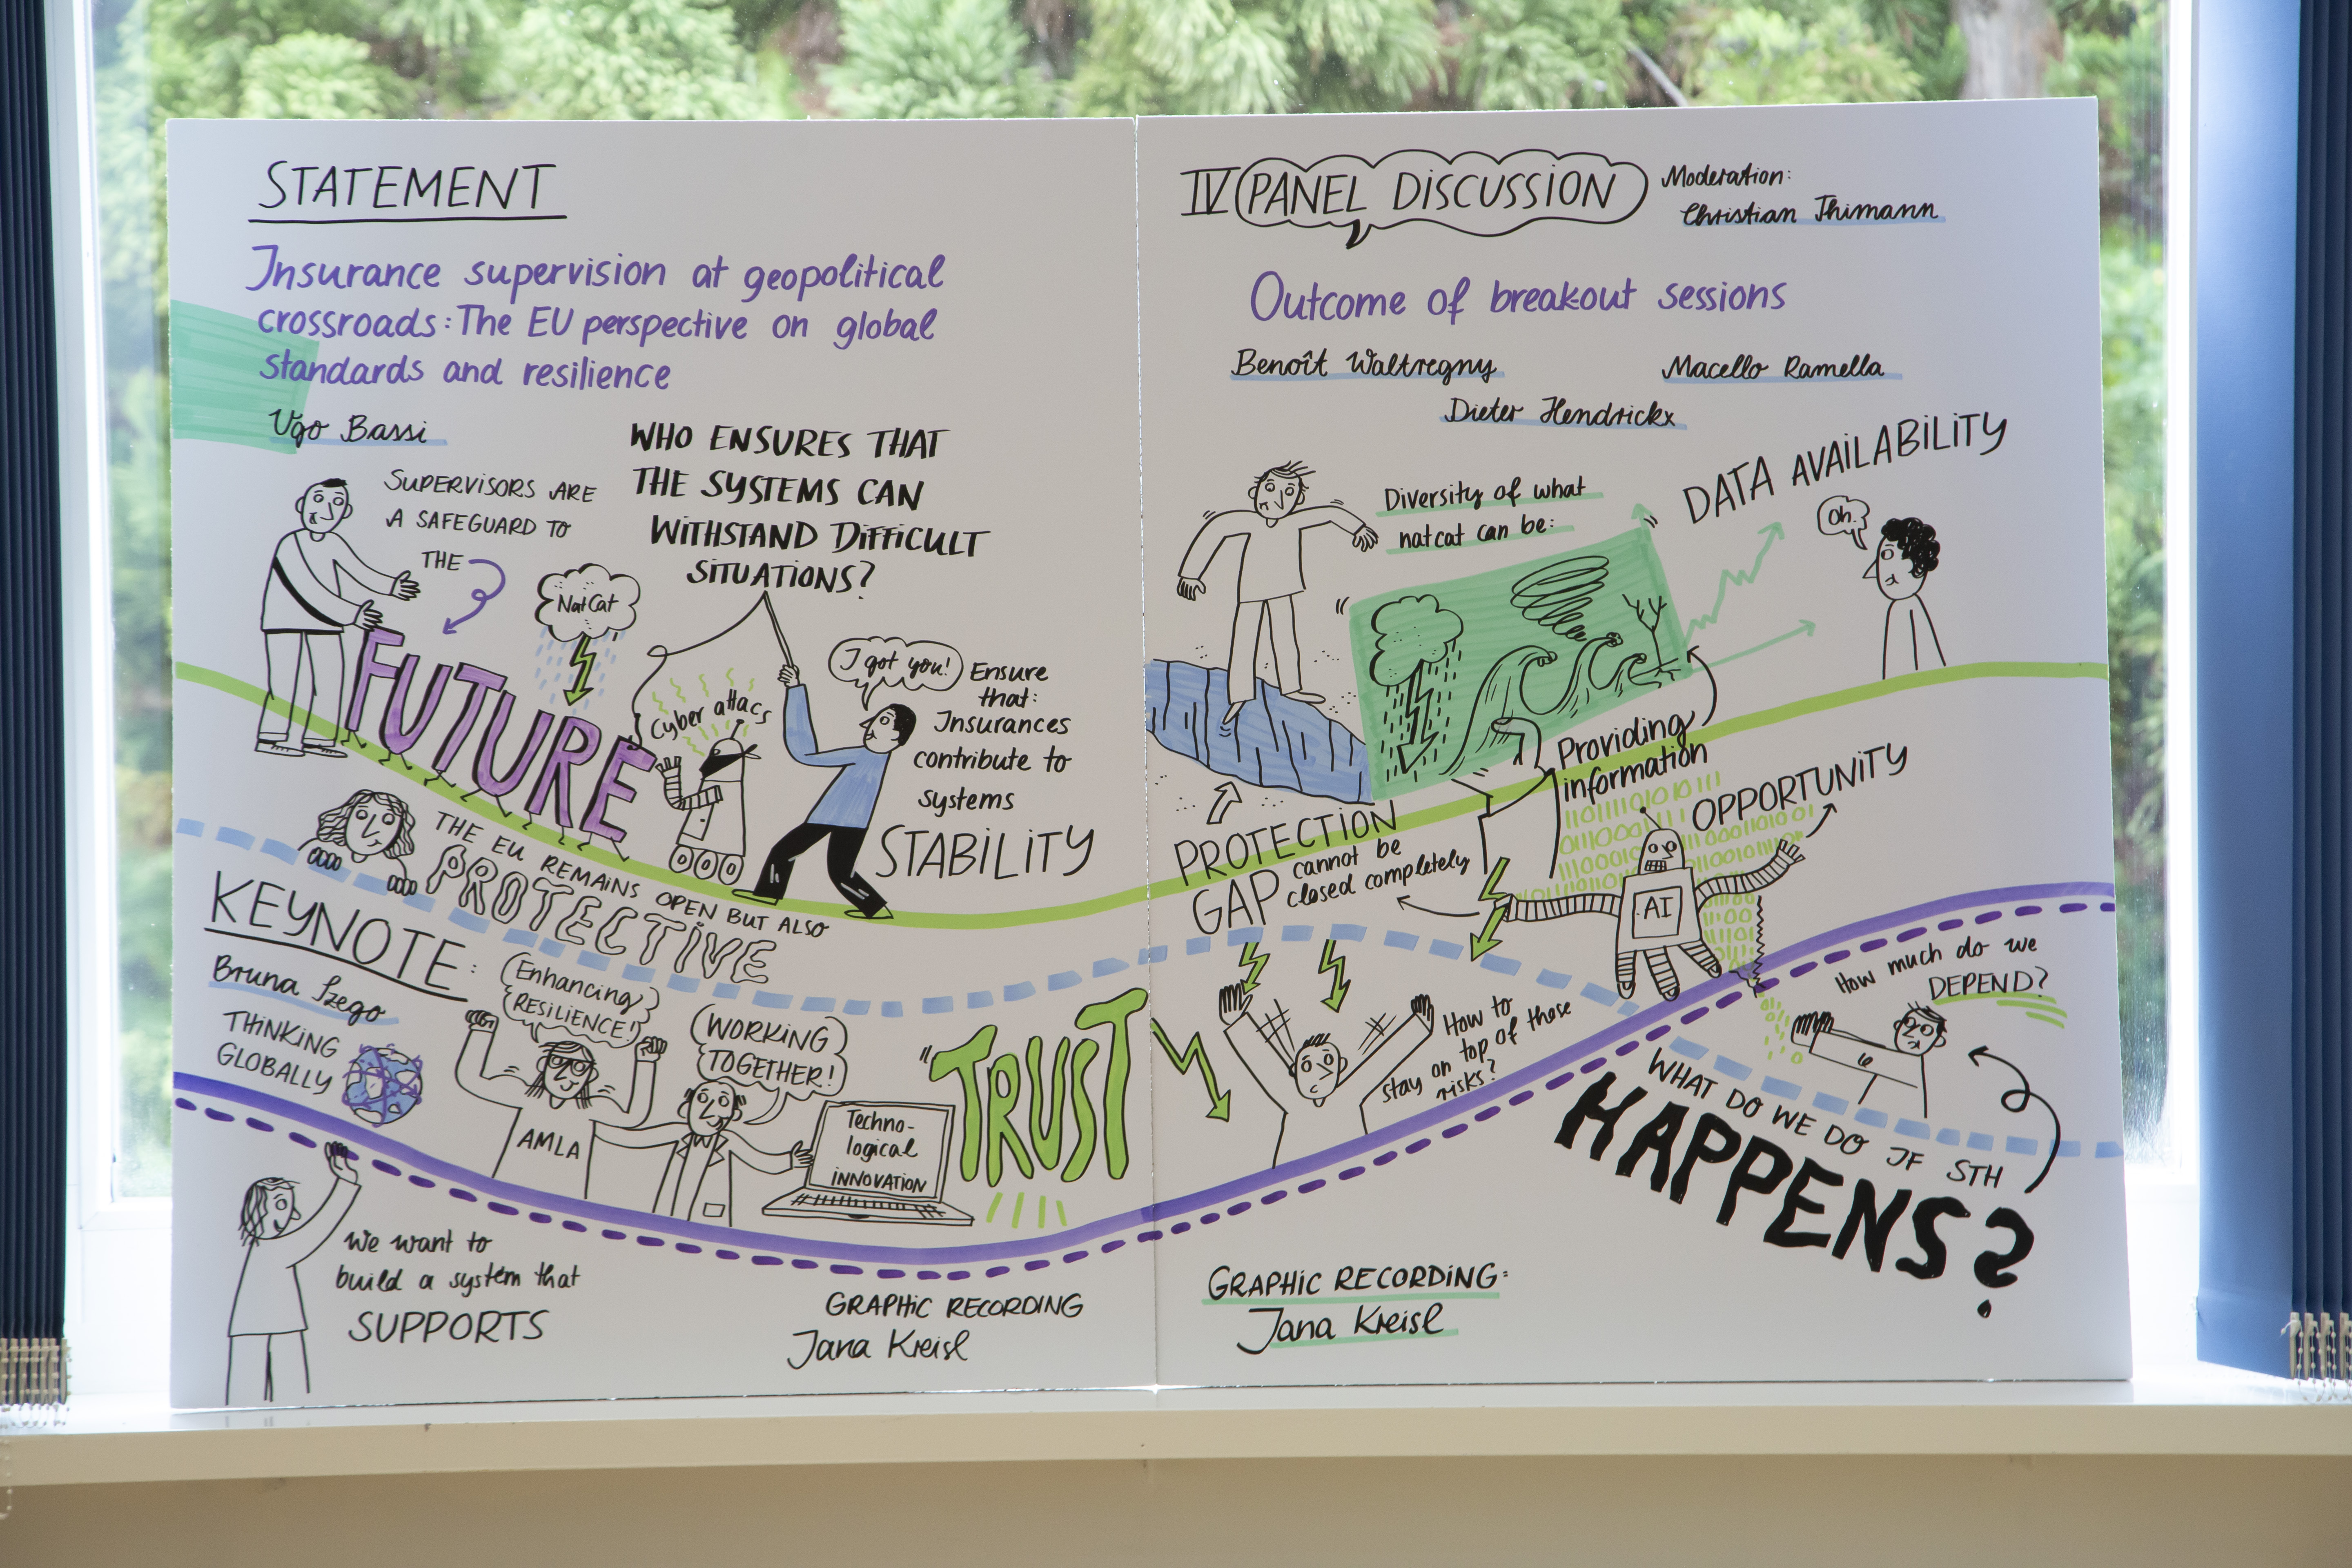 STATEMENT
Insurance supervision at geopolitical
crossroads: The EU perspective on global
standards and resilience
Ugo Bassi
SUPERVISORS ARE
A SAFEGUARD TO
THE
FUTURE
WHO ENSURES THAT
THE SYSTEMS CAN
WITHSTAND DIFFICULT
SITUATIONS?
NatCat
Cyber attacs
I got you!
Ensure
that:
Insurances
contribute to
systems
STABILITY
THE EU REMAINS OPEN BUT ALSO
PROTECTIVE
KEYNOTE:
Bruna Szego
THINKING
GLOBALLY
Enhancing
RESILIENCE!
AMLA
WORKING
TOGETHER!
Techno-
logical
INNOVATION
"TRUST
We want to
build a system that
SUPPORTS
GRAPHIC RECORDING
Jana Kreisl
IV PANEL DISCUSSION
Moderation:
Christian Thimann
Outcome of breakout sessions
Benoît Waltregny
Macello Ramella
Dieter Hendrickx
Diversity of what
natcat can be:
DATA AVAILABILITY
Oh.
Providing
information
PROTECTION
GAP
cannot be
closed completely
OPPORTUNITY
AI
How to
stay on top of those
risks?
How much do we
DEPEND?
WHAT DO WE DO IF STH
HAPPENS?
GRAPHIC RECORDING:
Jana Kreisl